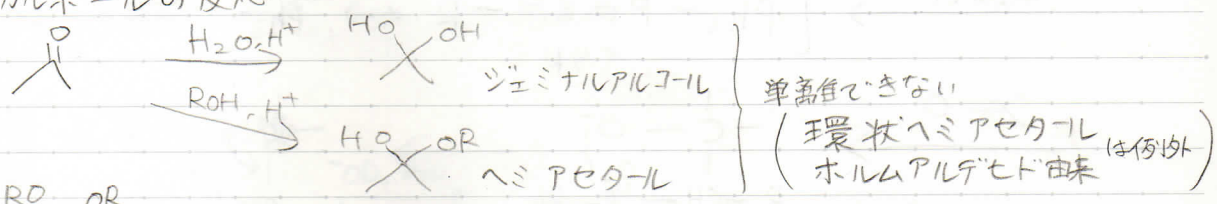 O
H₂O, H⁺
HO OH
ジェミナルアルコール
ROH, H⁺
HO OR
ヘミアセタール
単離できない
(環状ヘミアセタール
ホルムアルデヒド由来 は例外)
RO OR